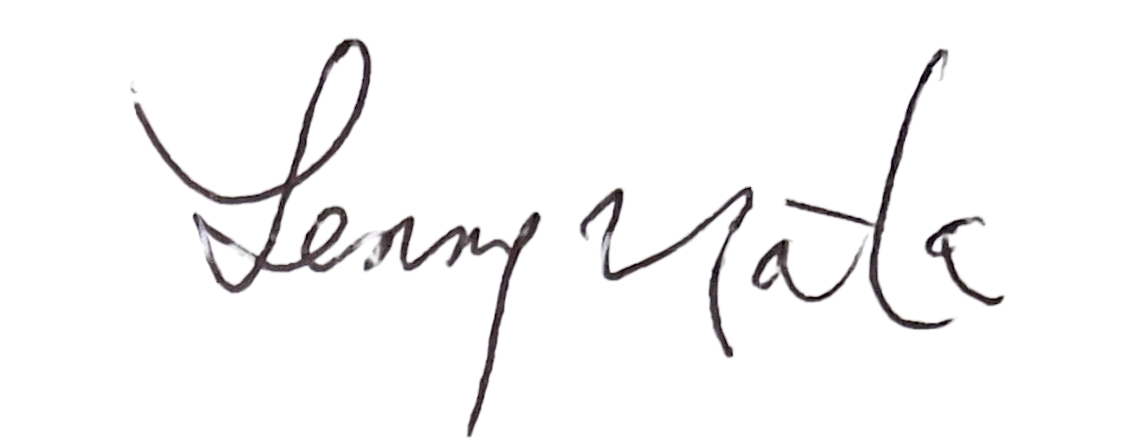 Lenny Mata